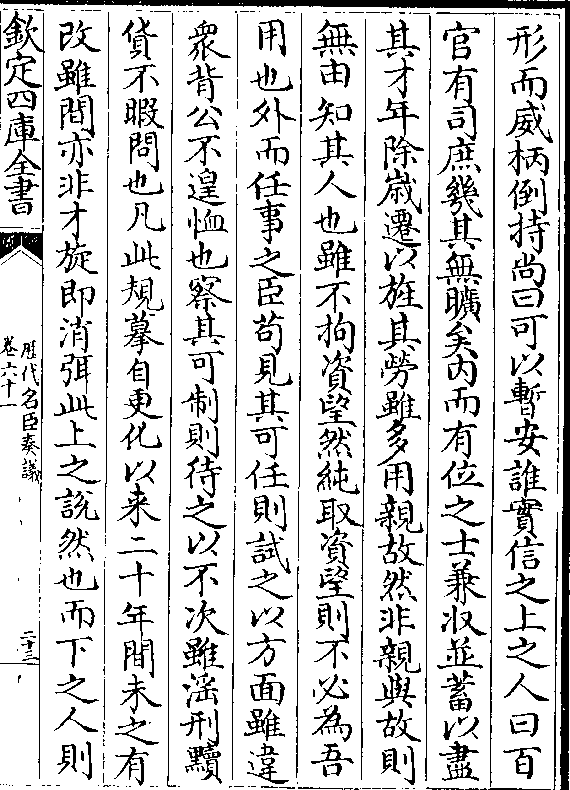 形而威柄倒持尚曰可以暫安誰實信之上之人曰百
官有司庶幾其無曠矣内而有位之士兼收並蓄以盡
其才年除嵗遷以旌其勞雖多用親故然非親與故則
無由知其人也雖不拘資望然純取資望則不必為吾
用也外而任事之臣苟見其可任則試之以方面雖違
衆背公不遑恤也察其可制則待之以不次雖滛刑黷
貨不暇問也凡此規摹自更化以来二十年間未之有
改雖間亦非才旋即消弭此上之説然也而下之人則
欽定四庫全書
歴代名臣奏議
卷六十一
二十三